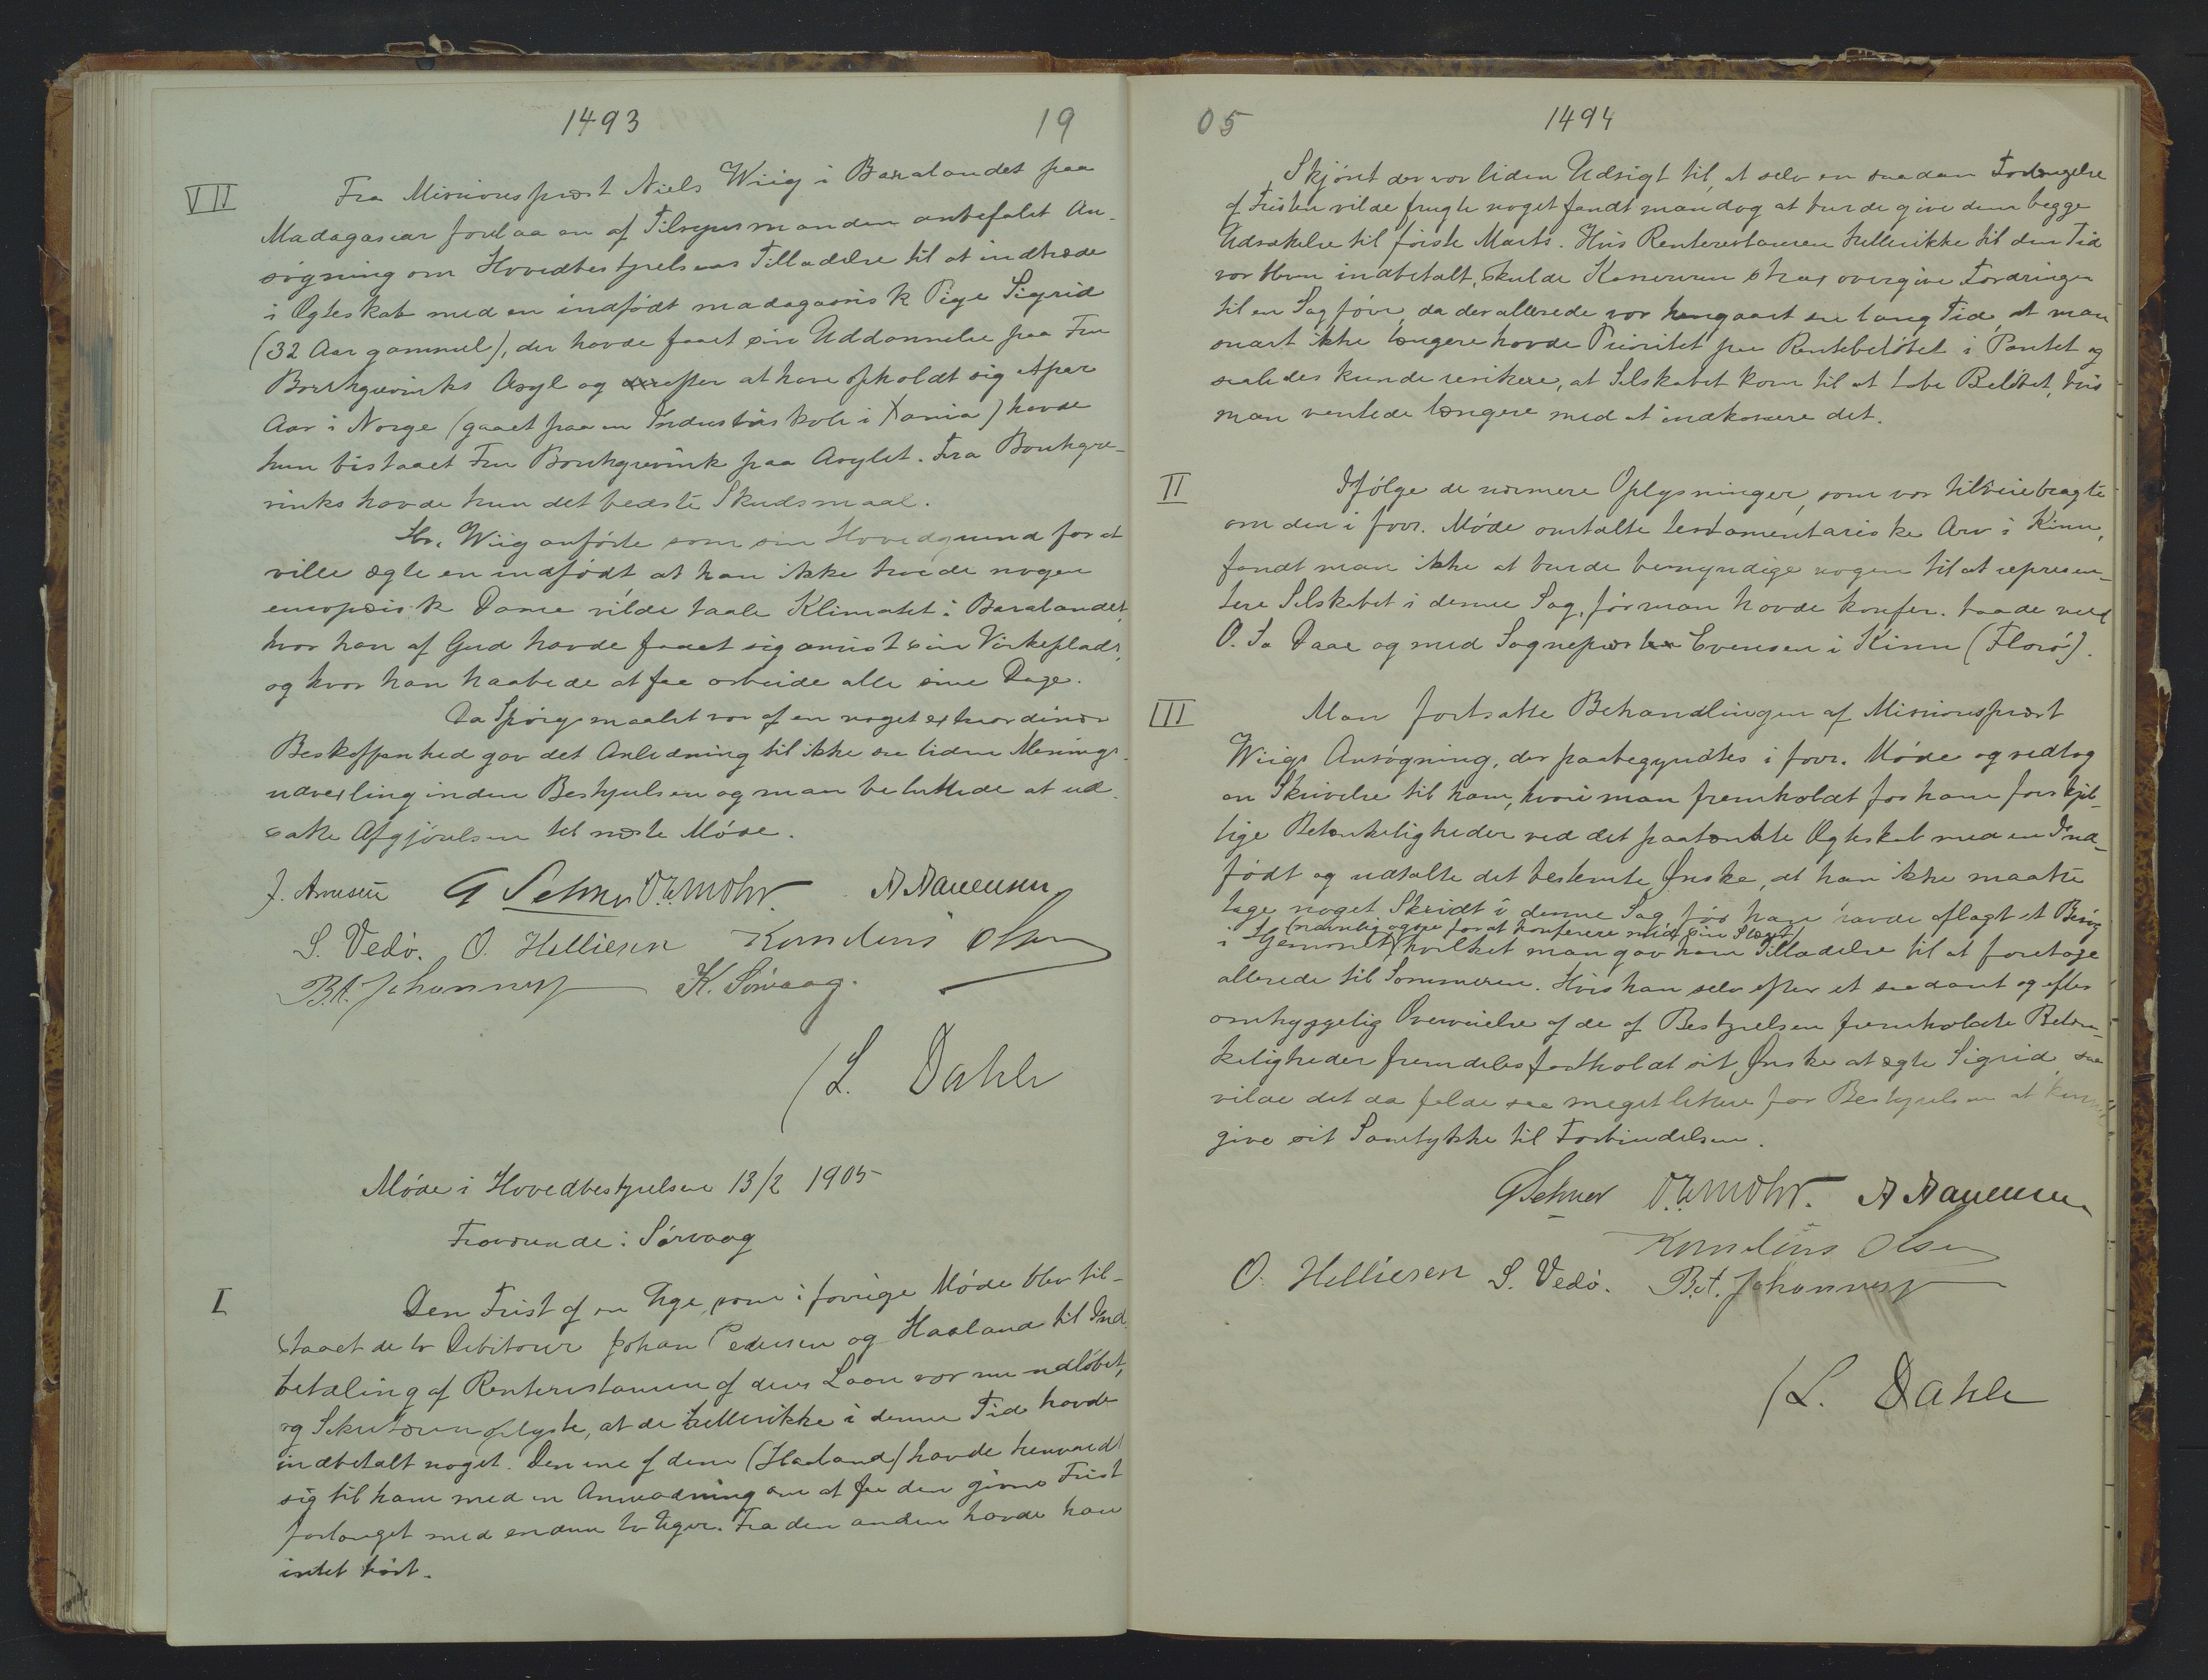 1493
19
VII
Fra Missionsprest Niels Wiig i Baralandet paa
Madagascar forelaa en af Tilsynsmanden anbefalet An-
søgning om Hovedbestyrelsens Tilladelse til at indtræde
i Ægteskab med en indfødt madagassisk Pige Sigrid
(32 Aar gammel), der havde faaet sin Uddannelse paa Fru
Borchgrevinks Asyl og efter at have opholdt sig et par
Aar i Norge (gaaet paa en Industriskole i Xania) havde
hun bistaaet Fru Borchgrevink paa Asylet. Fra Borchgre-
vinks havde hun det bedste Skudsmaal.
Hr. Wiig anførte som sin Hovedgrund for at
ville ægte en indfødt, at han ikke troede nogen
europæisk Dame vilde taale Klimatet i Baralandet,
hvor han af Gud havde faaet sig anvist sin Virkeplads,
og hvor han haabede at faa arbeide alle sine Dage.
Da Spørgsmaalet var af en noget extraordinær
Beskaffenhed gav det Anledning til ikke saa liden Menings-
udvexling inden Bestyrelsen og man besluttede at ud-
sætte Afgjørelsen til næste Møde.
J. Arnesen G Selmer O. W. Mohr. A Aanensen
S. Vedø. O. Helliesen Kornelius Olsen
B.A. Johannesen K. Sørvaag.
/L. Dahle
Møde i Hovedbestyrelsen 13/2 1905
Fraværende: Sørvaag
I
Den Frist af en Uge, som i forrige Møde blev til-
staaet de to Debitorer Johan Pedersen og Haaland til Ind-
betaling af Renterestancen af deres Laan var nu udløbet,
og Sekretæren oplyste, at de hellerikke i denne Tid havde
indbetalt noget. Den ene af dem (Haaland) havde henvendt
sig til ham med en Anmodning om at faa den givne Frist
forlænget med endnu to Uger. Fra den anden havde han
intet hørt.
05
1494
Skjønt der var liden Udsigt til, at selv en saadan Forlængelse
af Fristen vilde frugte noget fandt man dog at burde give dem begge
Udsættelse til første Marts. Hvis Renterestancen hellerikke til den Tid
var bleven indbetalt, skulde Kassereren strax overgive Fordringen
til en Sagfører, da der allerede var hengaaet saa lang Tid, at man
snart ikke længere havde Prioritet paa Rentebeløbet i Pantet og
saaledes kunde risikere, at Selskabet kom til at tabe Beløbet, hvis
man ventede længere med at indkassere det.
II
Ifølge de nærmere Oplysninger, som var tilveiebragte
om den i forr. Møde omtalte testamentariske Arv i Kinn,
fandt man ikke at burde bemyndige nogen til at represen-
tere Selskabet i denne Sag, før man havde konfer. baade med
O. Sa Daae og med Sogneprest Evensen i Kinn (Florø).
III
Man fortsatte Behandlingen af Missionsprest
Wiigs Ansøgning, der paabegyndtes i forr. Møde og vedtog
en Skrivelse til ham, hvori man fremholdt for ham forskjel-
lige Betænkeligheder ved det paatænkte Ægteskab med en Ind-
født og udtalte det bestemte Ønske, at han ikke maatte
tage noget Skridt i denne Sag, før han havde aflagt et Besøg
(navnlig ogsaa for at konferere med sin Slægt)
i Hjemmet hvilket man gav ham Tilladelse til at foretage
allerede til Sommeren. Hvis han selv efter et saadant og efter
omhyggelig Overveielse af de af Bestyrelsen fremholdte Betæn-
keligheder fremdeles fastholdt sit Ønske at ægte Sigrid, saa
vilde det da falde saa meget lettere for Bestyrelsen at kunne
give sit Samtykke til Forbindelsen.
G Selmer O. W. Mohr. A Aanensen
Kornelius Olsen
O. Helliesen S. Vedø. B.A. Johannesen
/L. Dahle